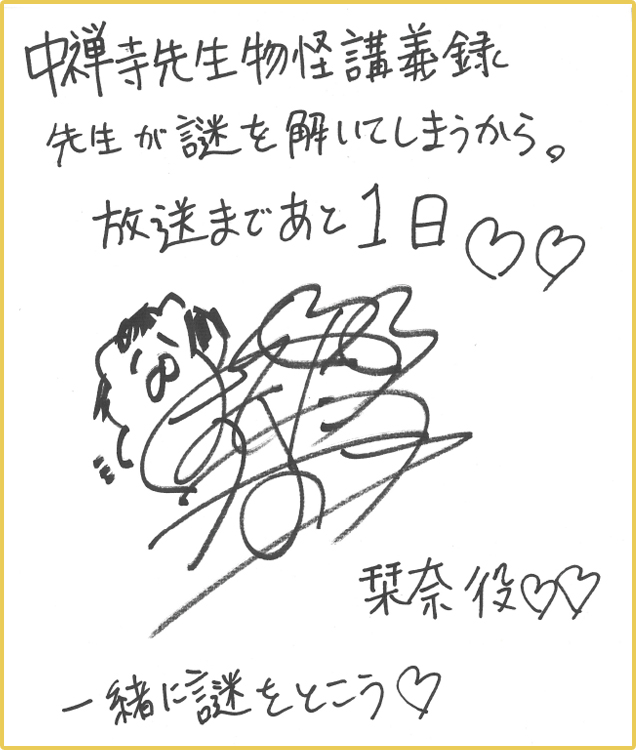 中禅寺先生物怪講義録
先生が謎を解いてしまうから。
放送まであと1日♡♡
栞奈役♡♡
一緒に謎をとこう♡